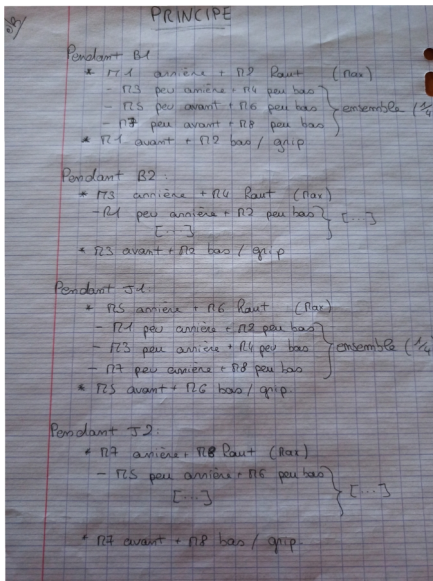 PRINCIPE
Pendant B1
* M1 arrière + M2 haut (Max)
- M3 peu arrière + M4 peu bas
- M5 peu avant + M6 peu bas
- M7 peu avant + M8 peu bas } ensemble (1/4)
* M1 avant + M2 bas / grip
Pendant B2:
* M3 arrière + M4 haut (Max)
- M1 peu arrière + M2 peu bas } [...]
[...]
* M3 avant + M2 bas / grip
Pendant J1:
* M5 arrière + M6 haut (Max)
- M1 peu arrière + M2 peu bas
- M3 peu arrière + M4 peu bas } ensemble (1/4)
- M7 peu arrière + M8 peu bas
* M5 avant + M6 bas / grip.
Pendant J2:
* M7 arrière + M8 haut (Max)
- M5 peu arrière + M6 peu bas
[...] } [...]
* M7 avant + M8 bas / grip.